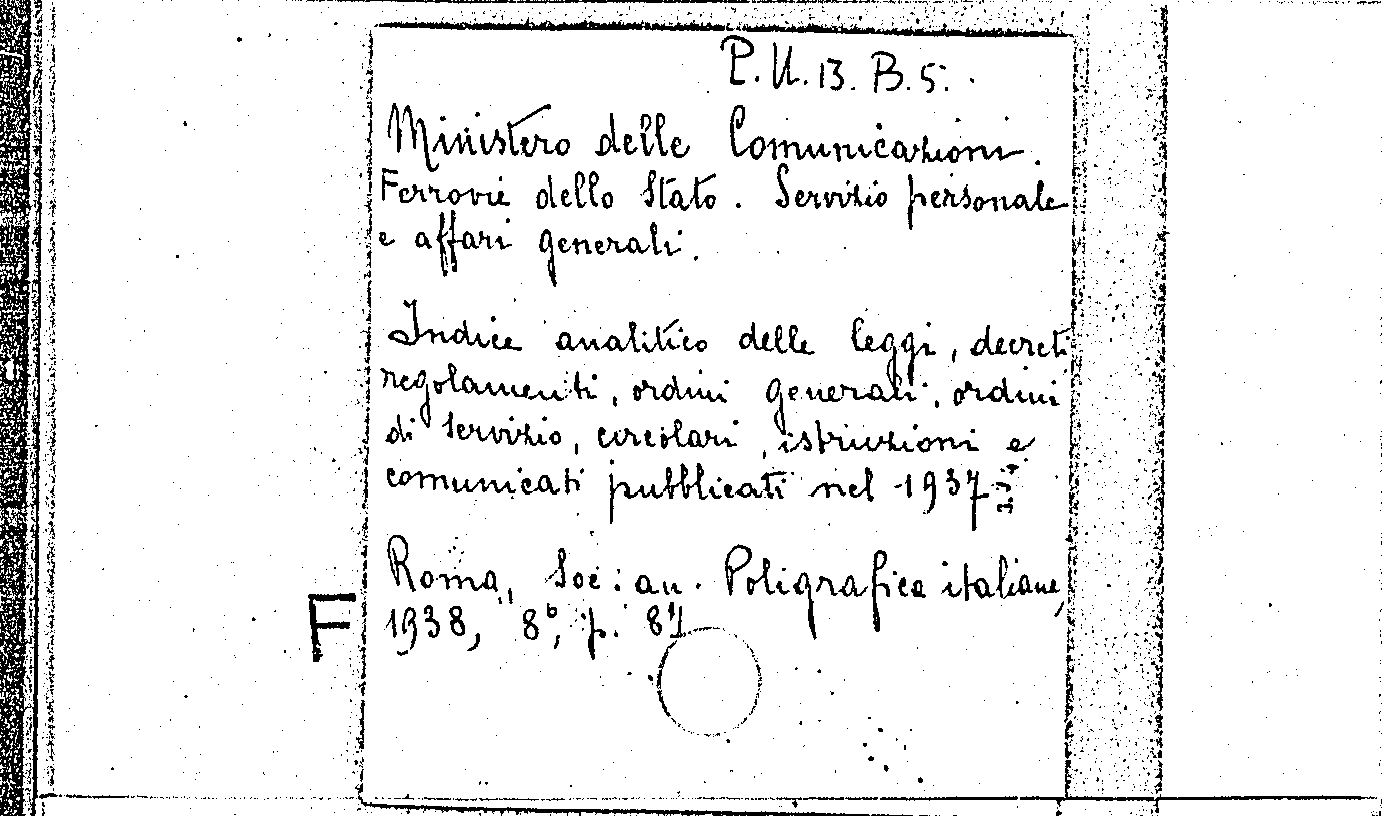 P.U.13.B.5.
Ministero delle Comunicazioni.
Ferrovie dello Stato. Servizio personale
e affari generali.
Indice analitico delle leggi, decreti
regolamenti, ordini generali, ordini
di servizio, circolari, istruzioni e
comunicati pubblicati nel 1937
Roma, Soc: an. Poligrafica italiana,
F 1938, 8°, p.